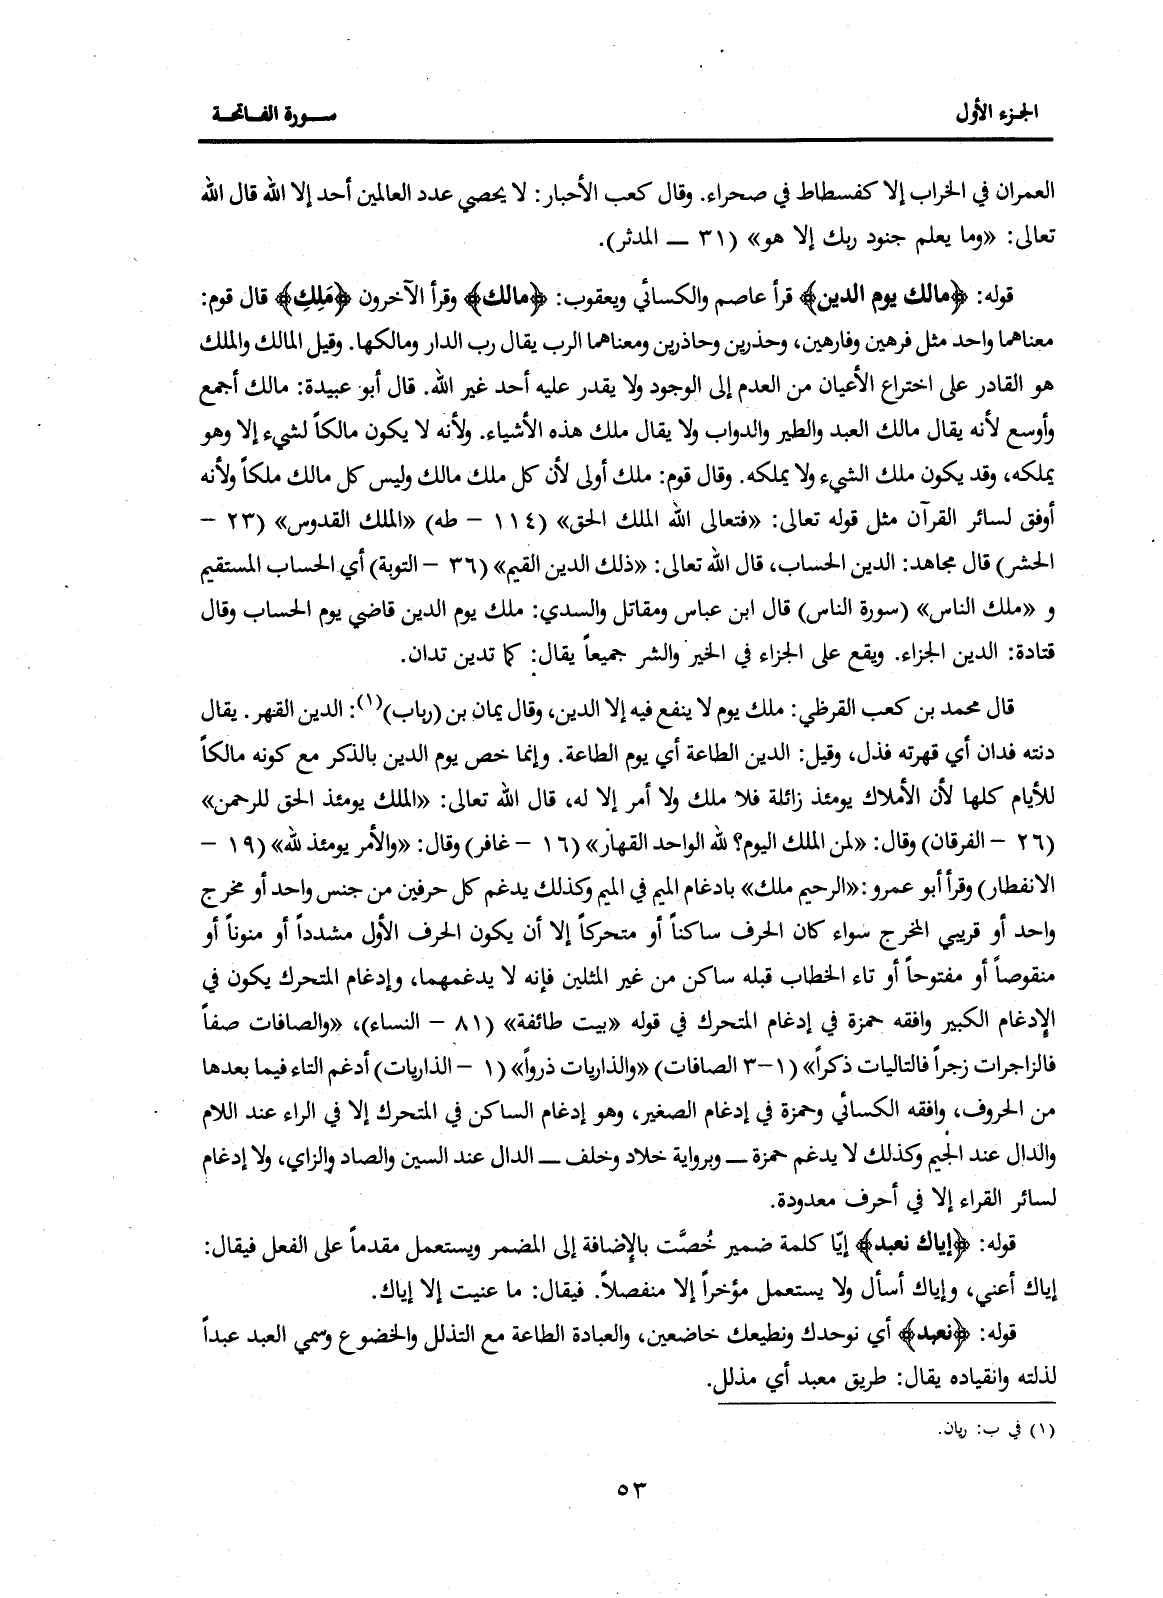 الجزء الأول
سورة الفاتحة
العمران في الخراب إلا كفسطاط في صحراء. وقال كعب الأحبار: لا يحصي عدد العالمين أحد إلا الله قال الله
تعالى: «وما يعلم جنود ربك إلا هو» (٣١ ــ المدثر).
قوله: ﴿مالك يوم الدين﴾ قرأ عاصم والكسائي ويعقوب: ﴿مالك﴾ وقرأ الآخرون ﴿مَلِكِ﴾ قال قوم:
معناهما واحد مثل فرهين وفارهين، وحذرين وحاذرين ومعناهما الرب يقال رب الدار ومالكها. وقيل المالك والملك
هو القادر على اختراع الأعيان من العدم إلى الوجود ولا يقدر عليه أحد غير الله. قال أبو عبيدة: مالك أجمع
وأوسع لأنه يقال مالك العبد والطير والدواب ولا يقال ملك هذه الأشياء. ولأنه لا يكون مالكاً لشيء إلا وهو
يملكه، وقد يكون ملك الشيء ولا يملكه. وقال قوم: ملك أولى لأن كل ملك مالك وليس كل مالك ملكاً ولأنه
أوفق لسائر القرآن مثل قوله تعالى: «فتعالى الله الملك الحق» (١١٤ – طه) «الملك القدوس» (٢٣ –
الحشر) قال مجاهد: الدين الحساب، قال الله تعالى: «ذلك الدين القيم» (٣٦ – التوبة) أي الحساب المستقيم
و «ملك الناس» (سورة الناس) قال ابن عباس ومقاتل والسدي: ملك يوم الدين قاضي يوم الحساب وقال
قتادة: الدين الجزاء. ويقع على الجزاء في الخير والشر جميعاً يقال: كما تدين تدان.
قال محمد بن كعب القرظي: ملك يوم لا ينفع فيه إلا الدين، وقال يمان بن (رباب)(١): الدين القهر. يقال
دنته فدان أي قهرته فذل، وقيل: الدين الطاعة أي يوم الطاعة. وإنما خص يوم الدين بالذكر مع كونه مالكاً
للأيام كلها لأن الأملاك يومئذ زائلة فلا ملك ولا أمر إلا له، قال الله تعالى: «الملك يومئذ الحق للرحمن»
(٢٦ – الفرقان) وقال: «لمن الملك اليوم؟ لله الواحد القهار» (١٦ – غافر) وقال: «والأمر يومئذ لله» (١٩ –
الانفطار) وقرأ أبو عمرو: «الرحيم ملك» بادغام الميم في الميم وكذلك يدغم كل حرفين من جنس واحد أو مخرج
واحد أو قريبي المخرج سواء كان الحرف ساكناً أو متحركاً إلا أن يكون الحرف الأول مشدداً أو منوناً أو
منقوصاً أو مفتوحاً أو تاء الخطاب قبله ساكن من غير المثلين فإنه لا يدغمهما، وإدغام المتحرك يكون في
الإدغام الكبير وافقه حمزة في إدغام المتحرك في قوله «بيت طائفة» (٨١ – النساء)، «والصافات صفاً
فالزاجرات زجراً فالتاليات ذكراً» (١–٣ الصافات) «والذاريات ذرواً» (١ – الذاريات) أدغم التاء فيما بعدها
من الحروف، وافقه الكسائي وحمزة في إدغام الصغير، وهو إدغام الساكن في المتحرك إلا في الراء عند اللام
والدال عند الجيم وكذلك لا يدغم حمزة ــ وبرواية خلاد وخلف ــ الدال عند السين والصاد والزاي، ولا إدغام
لسائر القراء إلا في أحرف معدودة.
قوله: ﴿إياك نعبد﴾ إيّا كلمة ضمير خُصَّت بالإضافة إلى المضمر ويستعمل مقدماً على الفعل فيقال:
إياك أعني، وإياك أسأل ولا يستعمل مؤخراً إلا منفصلاً. فيقال: ما عنيت إلا إياك.
قوله: ﴿نعبد﴾ أي نوحدك ونطيعك خاضعين، والعبادة الطاعة مع التذلل والخضوع وسمي العبد عبداً
لذلته وانقياده يقال: طريق معبد أي مذلل.
(١) في ب: ربان.
٥٣